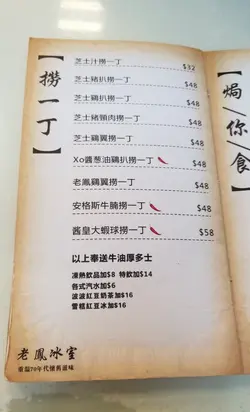 【撈一丁】
芝士汁撈一丁 $32
芝士豬扒撈一丁 $48
芝士鷄扒撈一丁 $48
芝士豬頸肉撈一丁 $48
芝士鷄翼撈一丁 $48
Xo醬葱油鷄扒撈一丁 $48
老鳳鷄翼撈一丁 $48
安格斯牛腩撈一丁 $48
醬皇大蝦球撈一丁 $58
以上奉送牛油厚多士
凍熱飲品加$8 特飲加$14
各式汽水加$6
波波紅豆奶茶加$16
雪糕紅豆冰加$16
老鳳冰室
重温70年代懷舊滋味
【焗/你/食